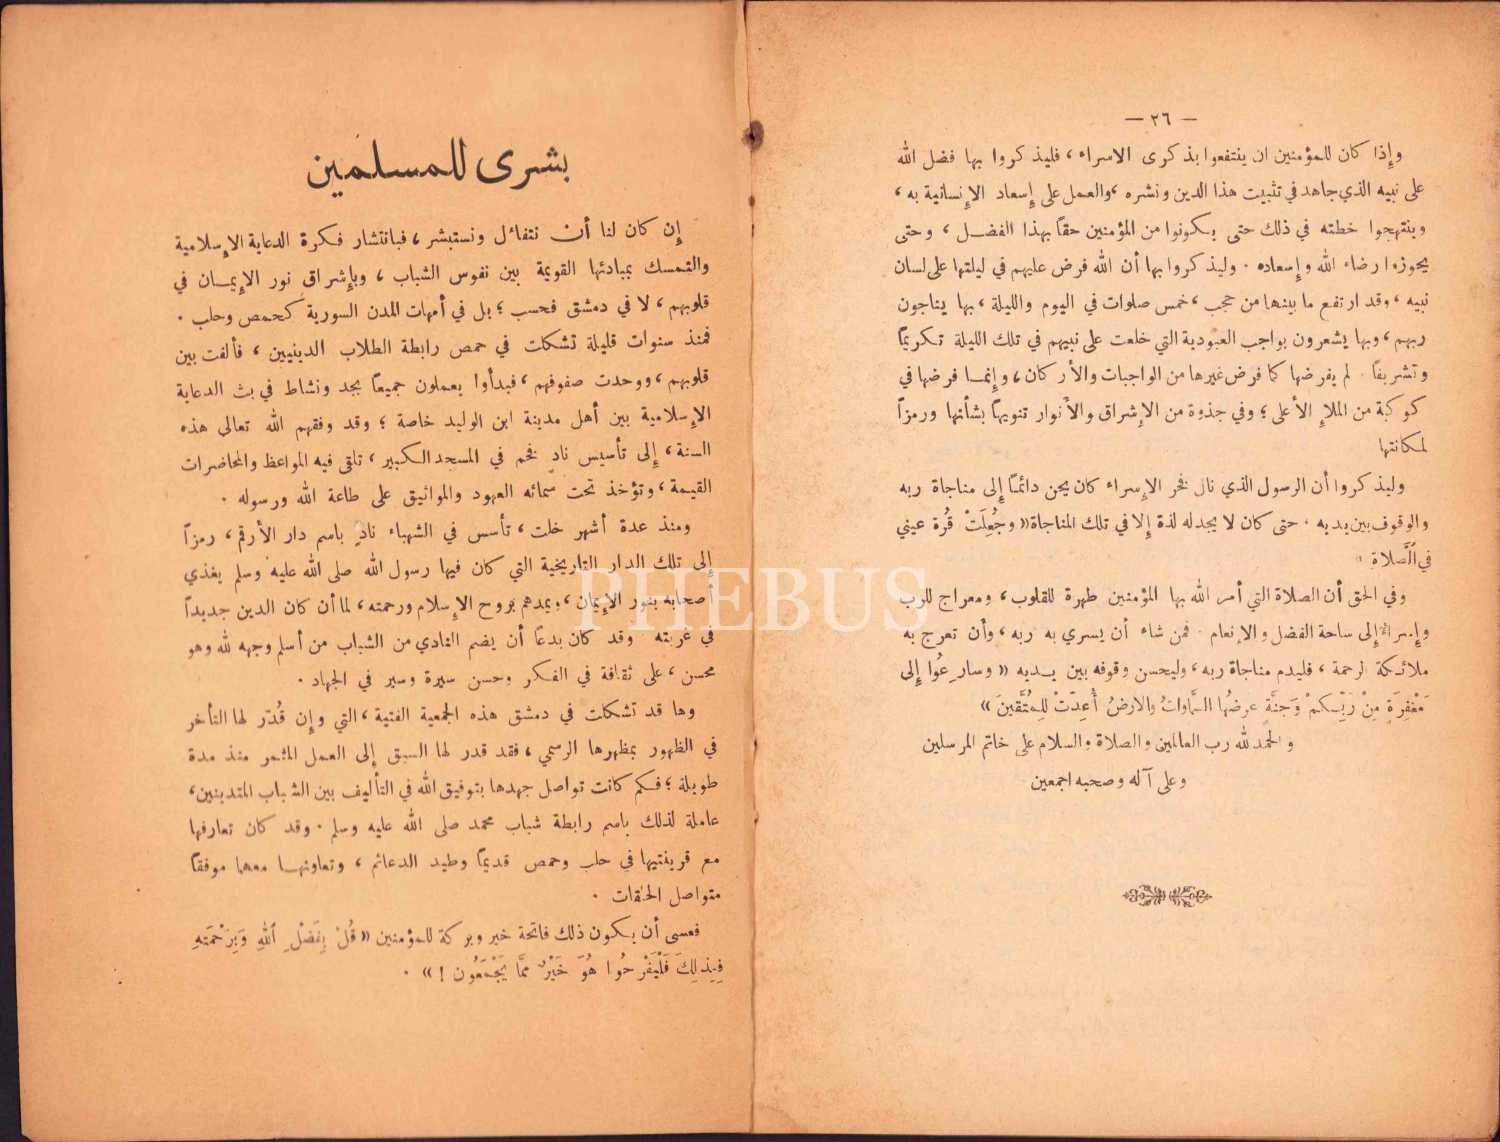 — ٢٦ —
وإِذا كان للمؤمنين ان ينتفعوا بذكرى الاسراء ، فليذكروا بها فضل الله
على نبيه الذي جاهد في تثبيت هذا الدين ونشره ، والعمل على إِسعاد الإِنسانية به ،
وينتهجوا خطته في ذلك حتى يكونوا من المؤمنين حقاً بهذا الفضل ، وحتى
يحوزوا رضاء الله وإِسعاده . وليذكروا بها أن الله فرض عليهم في ليلتها على لسان
نبيه ، وقد ارتفع ما بينهما من حجب ، خمس صلوات في اليوم والليلة ، بها يناجون
ربهم ، وبها يشعرون بواجب العبودية التي خلعت على نبيهم في تلك الليلة تكريماً
وتشريفاً . لم يفرضها كما فرض غيرها من الواجبات والأركان ، وإِنما فرضها في
كوكبة من الملإِ الأعلى ؛ وفي جذوة من الإِشراق والأنوار تنويهاً بشأنها ورمزاً
لمكانتها
وليذكروا أن الرسول الذي نال فخر الإِسراء كان يحن دائماً إِلى مناجاة ربه
والوقوف بين يديه . حتى كان لا يجد له لذة إِلا في تلك المناجاة « وجُعِلَتْ قُرة عيني
في الصَّلاة »
وفي الحق أن الصلاة التي أمر الله بها المؤمنين طهرة للقلوب ، ومعراج للرب
وإِسراء إِلى ساحة الفضل والإِنعام . فمن شاء أن يسري به ربه ، وأن تعرج به
ملائكة الرحمة ، فليدم مناجاة ربه ، وليحسن وقوفه بين يديه « وسارِعُوا إِلى
مَغْفِرَةٍ مِنْ رَبِّكمْ وَجَنةٍ عرضُها السَّماواتُ والارضُ أُعِدَّتْ لِلمُتَّقينَ »
والحمد لله رب العالمين والصلاة والسلام على خاتم المرسلين
وعلى آله وصحبه اجمعين
بشرى للمسلمين
إِن كان لنا أن نتفاءل ونستبشر ، فبانتشار فكرة الدعاية الإِسلامية
والتمسك بمبادئها القويمة بين نفوس الشباب ، وبإِشراق نور الإِيمان في
قلوبهم ، لا في دمشق فحسب ؛ بل في أمهات المدن السورية كحمص وحلب .
فمنذ سنوات قليلة تشكلت في حمص رابطة الطلاب الدينيين ، فألفت بين
قلوبهم ، ووحدت صفوفهم ، فبدأوا يعملون جميعاً بجد ونشاط في بث الدعاية
الإِسلامية بين أهل مدينة ابن الوليد خاصة ؛ وقد وفقهم الله تعالى هذه
السنة ، إِلى تأسيس نادٍ فخم في المسجد الكبير ، تلقى فيه المواعظ والمحاضرات
القيمة ، وتؤخذ تحت سمائه العهود والمواثيق على طاعة الله ورسوله .
ومنذ عدة أشهر خلت ، تأسس في الشهباء نادٍ باسم دار الأرقم ، رمزاً
إِلى تلك الدار التاريخية التي كان فيها رسول الله صلى الله عليه وسلم يغذي
أصحابه بنور الإِيمان ، ويمدهم بروح الإِسلام ورحمته ، لما أن كان الدين جديداً
في غربته . وقد كان بدعاً أن يضم النادي من الشباب من أسلم وجهه لله وهو
محسن ، على ثقافة في الفكر وحسن سيرة وسير في الجهاد .
وها قد تشكلت في دمشق هذه الجمعية الفتية ، التي وإِن قُدّر لها التأخر
في الظهور بمظهرها الرسمي ، فقد قدر لها السبق إِلى العمل المثمر منذ مدة
طويلة ؛ فكم كانت تواصل جهدها بتوفيق الله في التأليف بين الشباب المتدينين ،
عاملة لذلك باسم رابطة شباب محمد صلى الله عليه وسلم . وقد كان تعارفها
مع قرينتيها في حلب وحمص قديماً وطيد الدعائم ، وتعاونها معهما موفقاً
متواصل الحلقات .
فعسى أن يكون ذلك فاتحة خير وبركة للمؤمنين « قُلْ بِفَضْلِ اللهِ وَبِرَحْمَتِهِ
فَبِذلِكَ فَلْيَفْرحُوا هُوَ خَيْرٌ ممَّا يَجْمَعُون ! » .
PHEBUS